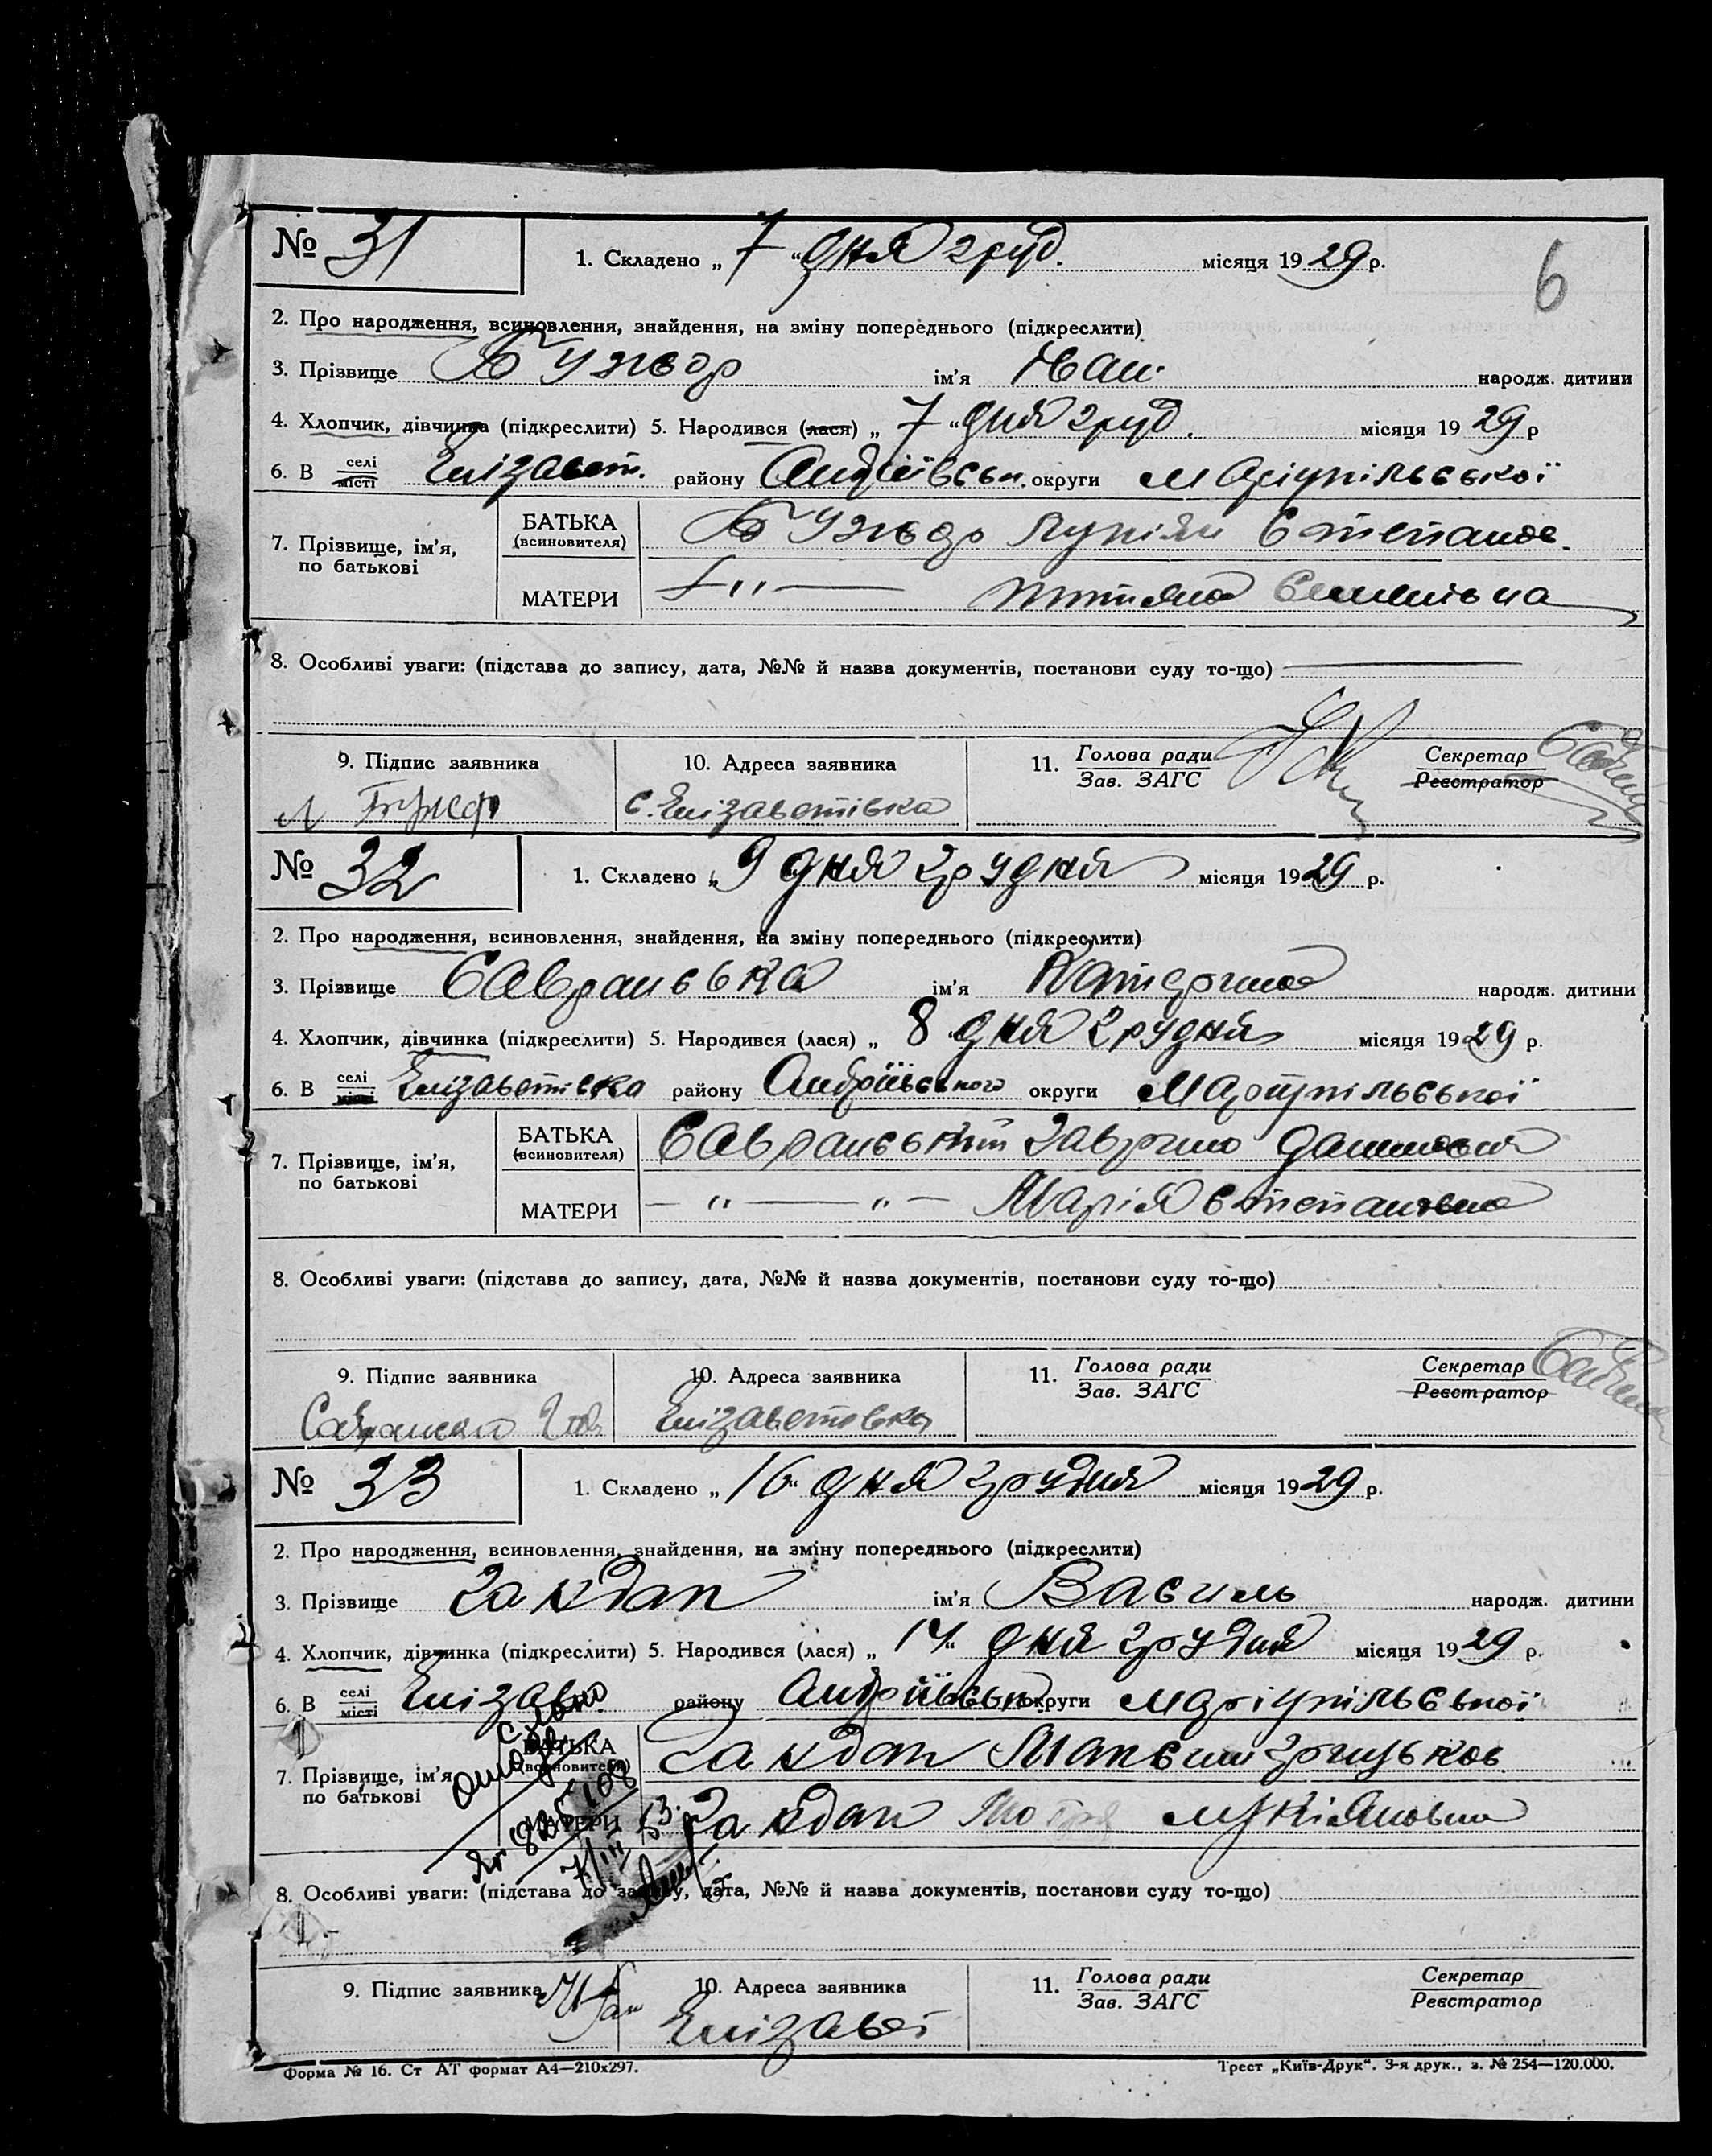 6
№ 31 1. Складено „ 7 “ дня груд. місяця 1929 р.
2. Про народження, всиновлення, знайдення, на зміну попереднього (підкреслити)
3. Прізвище ім'я Іван народж. дитини
4. Хлопчик, дівчинка (підкреслити) 5. Народився (лася) „ 7 “ дня груд. місяця 1929 р
6. В селі місті Єлізавет. району Андріївськ. округи Маріупільської
7. Прізвище, ім'я, по батькові БАТЬКА (всиновителя)
МАТЕРИ — „ —
8. Особливі уваги: (підстава до запису, дата, №№ й назва документів, постанови суду то-що)
9. Підпис заявника 10. Адреса заявника 11. Голова ради Зав. ЗАГС Секретар Реєстратор
с. Єлізаветівка
№ 32 1. Складено „ 9 дня грудня місяця 1929 р.
2. Про народження, всиновлення, знайдення, на зміну попереднього (підкреслити)
3. Прізвище Савранська ім'я Катерина народж. дитини
4. Хлопчик, дівчинка (підкреслити) 5. Народився (лася) „ 8 дня грудня місяця 1929 р.
6. В селі місті Єлізаветівка району Андріївського округи Маріупільської
7. Прізвище, ім'я, по батькові БАТЬКА (всиновителя) Савранський Гаврило
МАТЕРИ — „ — „ — Марія Степановна
8. Особливі уваги: (підстава до запису, дата, №№ й назва документів, постанови суду то-що)
9. Підпис заявника 10. Адреса заявника 11. Голова ради Зав. ЗАГС Секретар Реєстратор
Єлізаветовка
№ 33 1. Складено „ 16 “ дня грудня місяця 1929 р.
2. Про народження, всиновлення, знайдення, на зміну попереднього (підкреслити)
3. Прізвище Гайдап ім'я Василь народж. дитини
4. Хлопчик, дівчинка (підкреслити) 5. Народився (лася) „ 14 “ дня грудня місяця 1929 р.
6. В селі місті району Андріївськ. округи Маріупільської
7. Прізвище, ім'я, по батькові БАТЬКА (всиновителя) Гайдап
МАТЕРИ Гайдап Мотря Лукіяновна
8. Особливі уваги: (підстава до запису, дата, №№ й назва документів, постанови суду то-що)
9. Підпис заявника 10. Адреса заявника 11. Голова ради Зав. ЗАГС Секретар Реєстратор
Єлізавет
Форма № 16. Ст АТ формат А4—210х297. Трест „Київ-Друк“. 3-я друк., з. № 254—120.000.